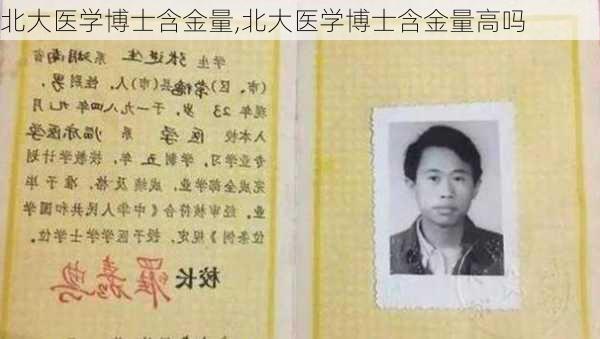 北大医学博士含金量,北大医学博士含金量高吗
学生 张进生 系湖南省
(市、区)常德县(市)人,性别男,
现年 23 岁,于一九八四年九月
入本校 医学 系 临床医学
专业学习,学制 五 年,按教学计划
完成全部学业,成绩及格,准予毕
业。经审核符合《中华人民共和国学
位条例》规定,授予医学学士学位。
校长